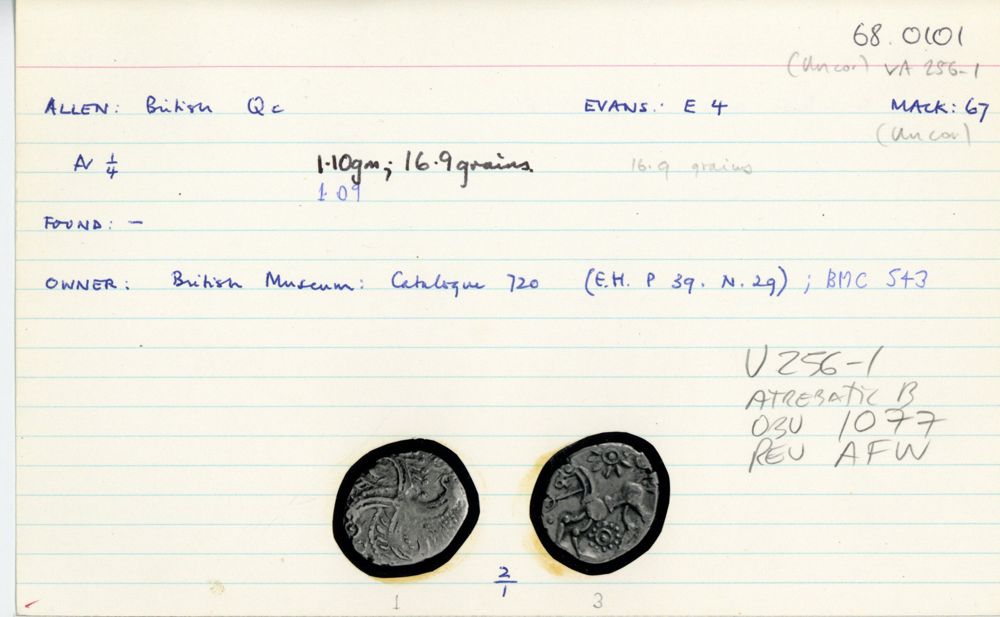 68.0101
(Uncor) VA 256-1
ALLEN: British Qc EVANS: E 4 MACK: 67
(Uncor)
N 1/4 1.10gm; 16.9 grains. 16.9 grains
1.09
FOUND: —
OWNER: British Museum: Catalogue 720 (E.H. P 39. N. 29); BMC 543
V 256-1
ATREBATIC B
OBV 1077
REV AFW
2/1
1 3